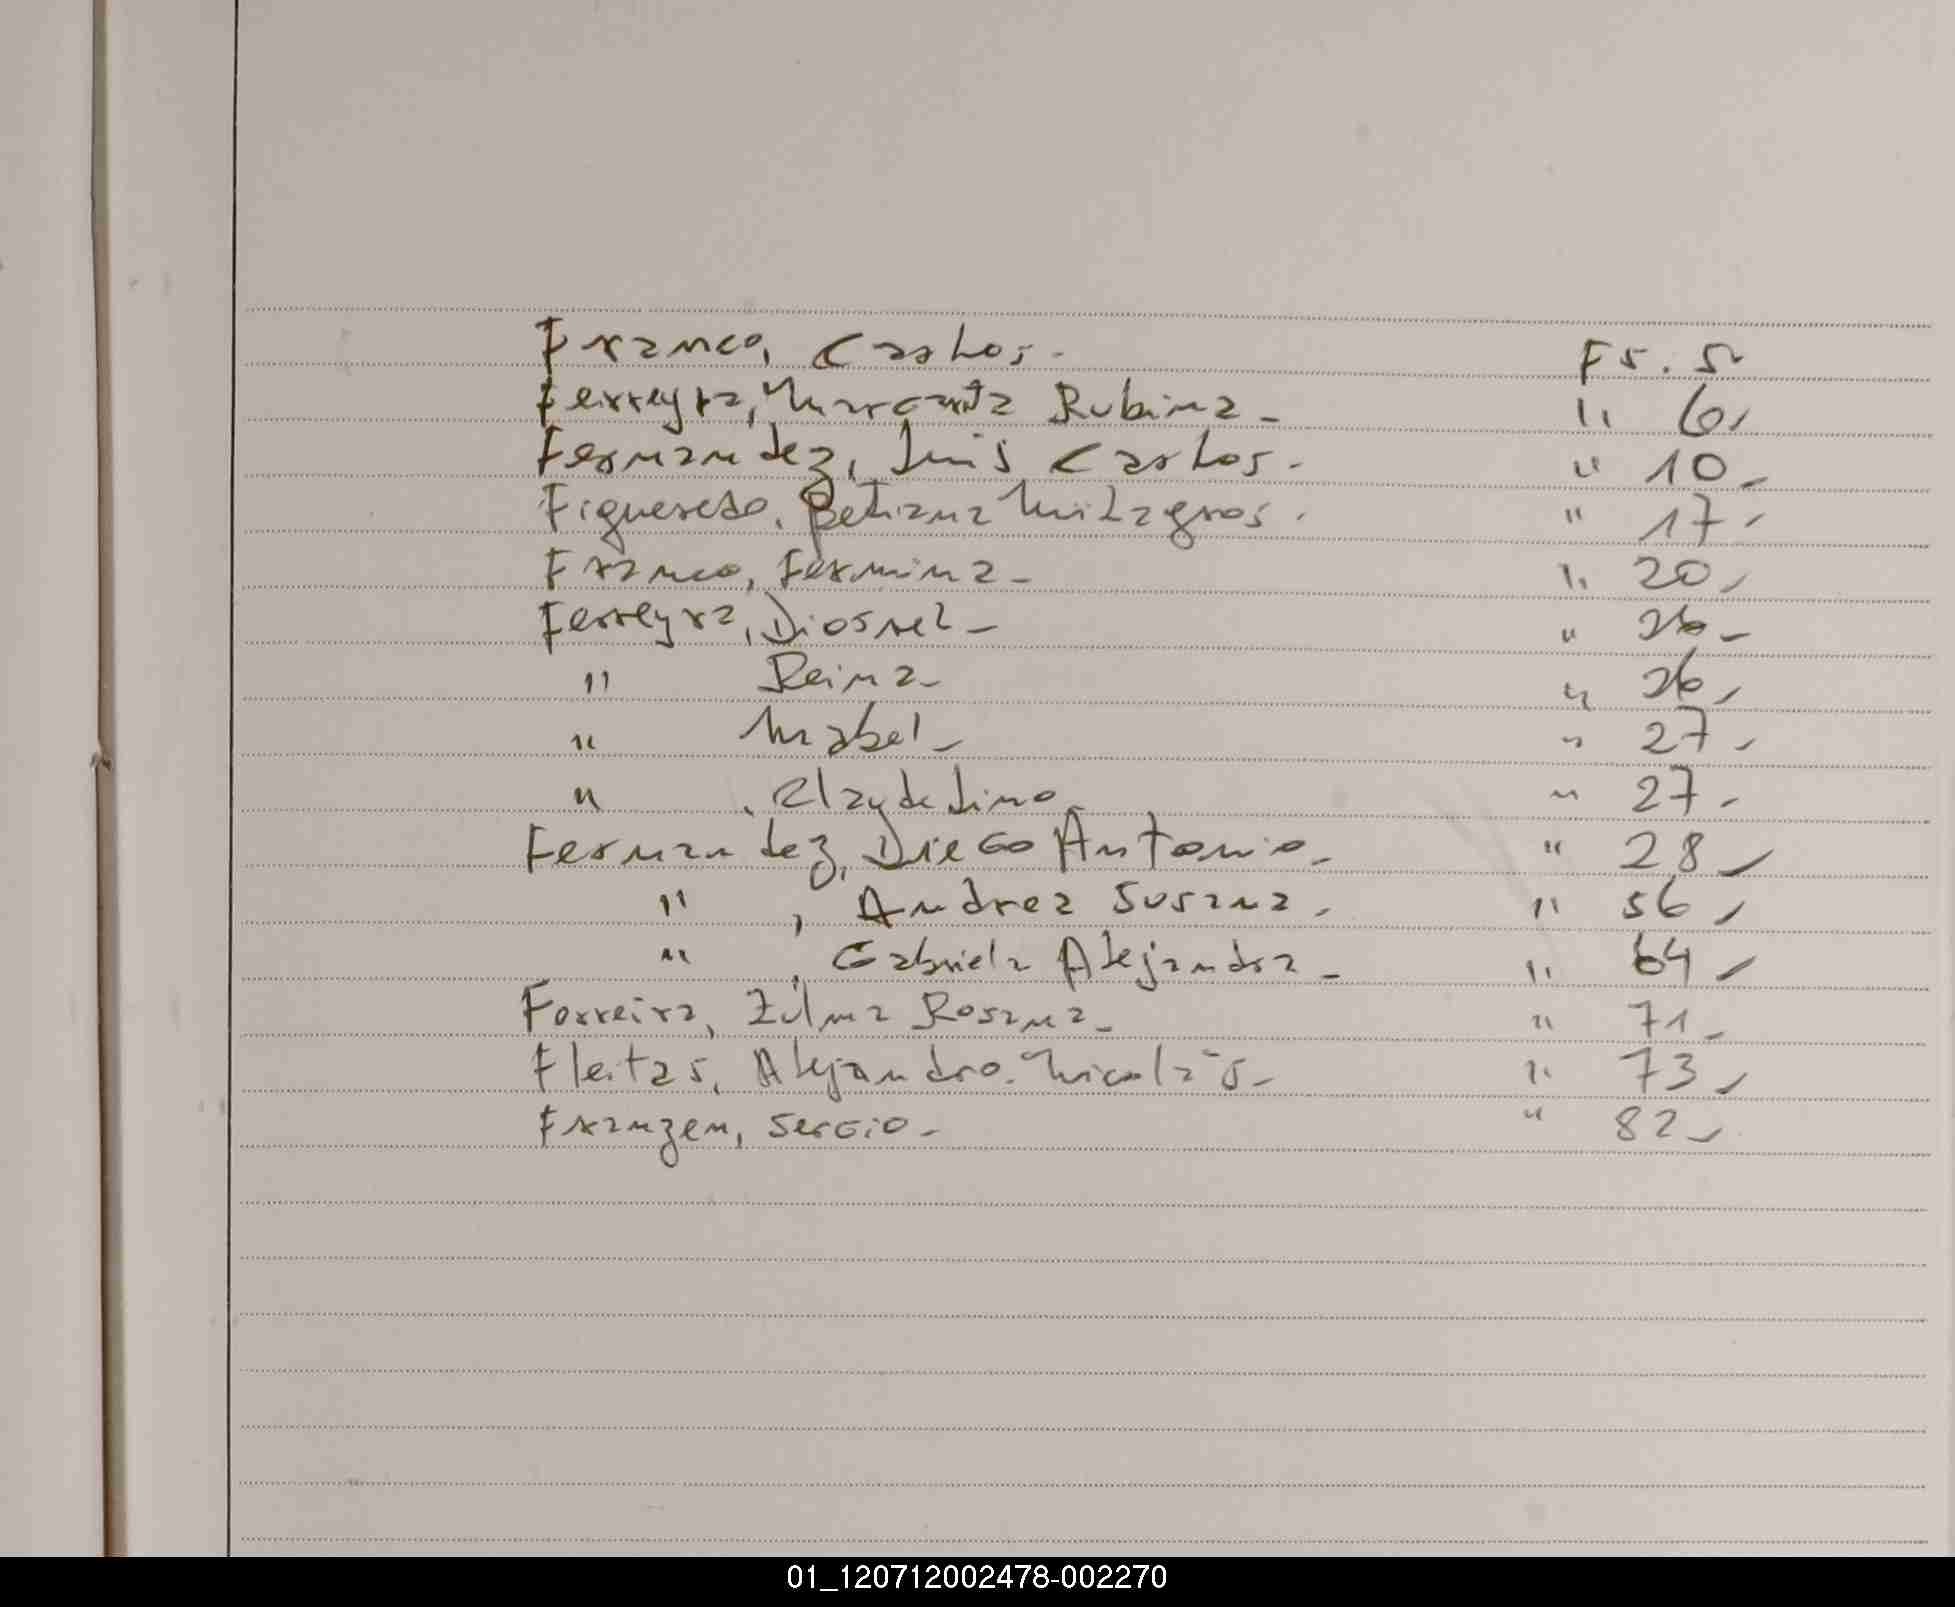 Franco, Carlos. Fs. 5
Ferreyra, Margarita Rubina - " 6,
Fernandez, Luis Carlos. - " 10,
Figueredo, Betiana Milagros. " 17,
Franco, Fermina - " 20,
Ferreyra, Diosnel - " 26 -
" Reina - " 26,
" Mabel - " 27,
" , Claydelino, " 27,
Fernandez, Diego Antonio - " 28,
" , Andrea Susana, " 56,
" , Gabriela Alejandra - " 64,
Ferreira, Zulma Rosana - " 71,
Fleitas, Alejandro Nicolás - " 73,
Franzen, Sergio - " 82,
01_120712002478-002270